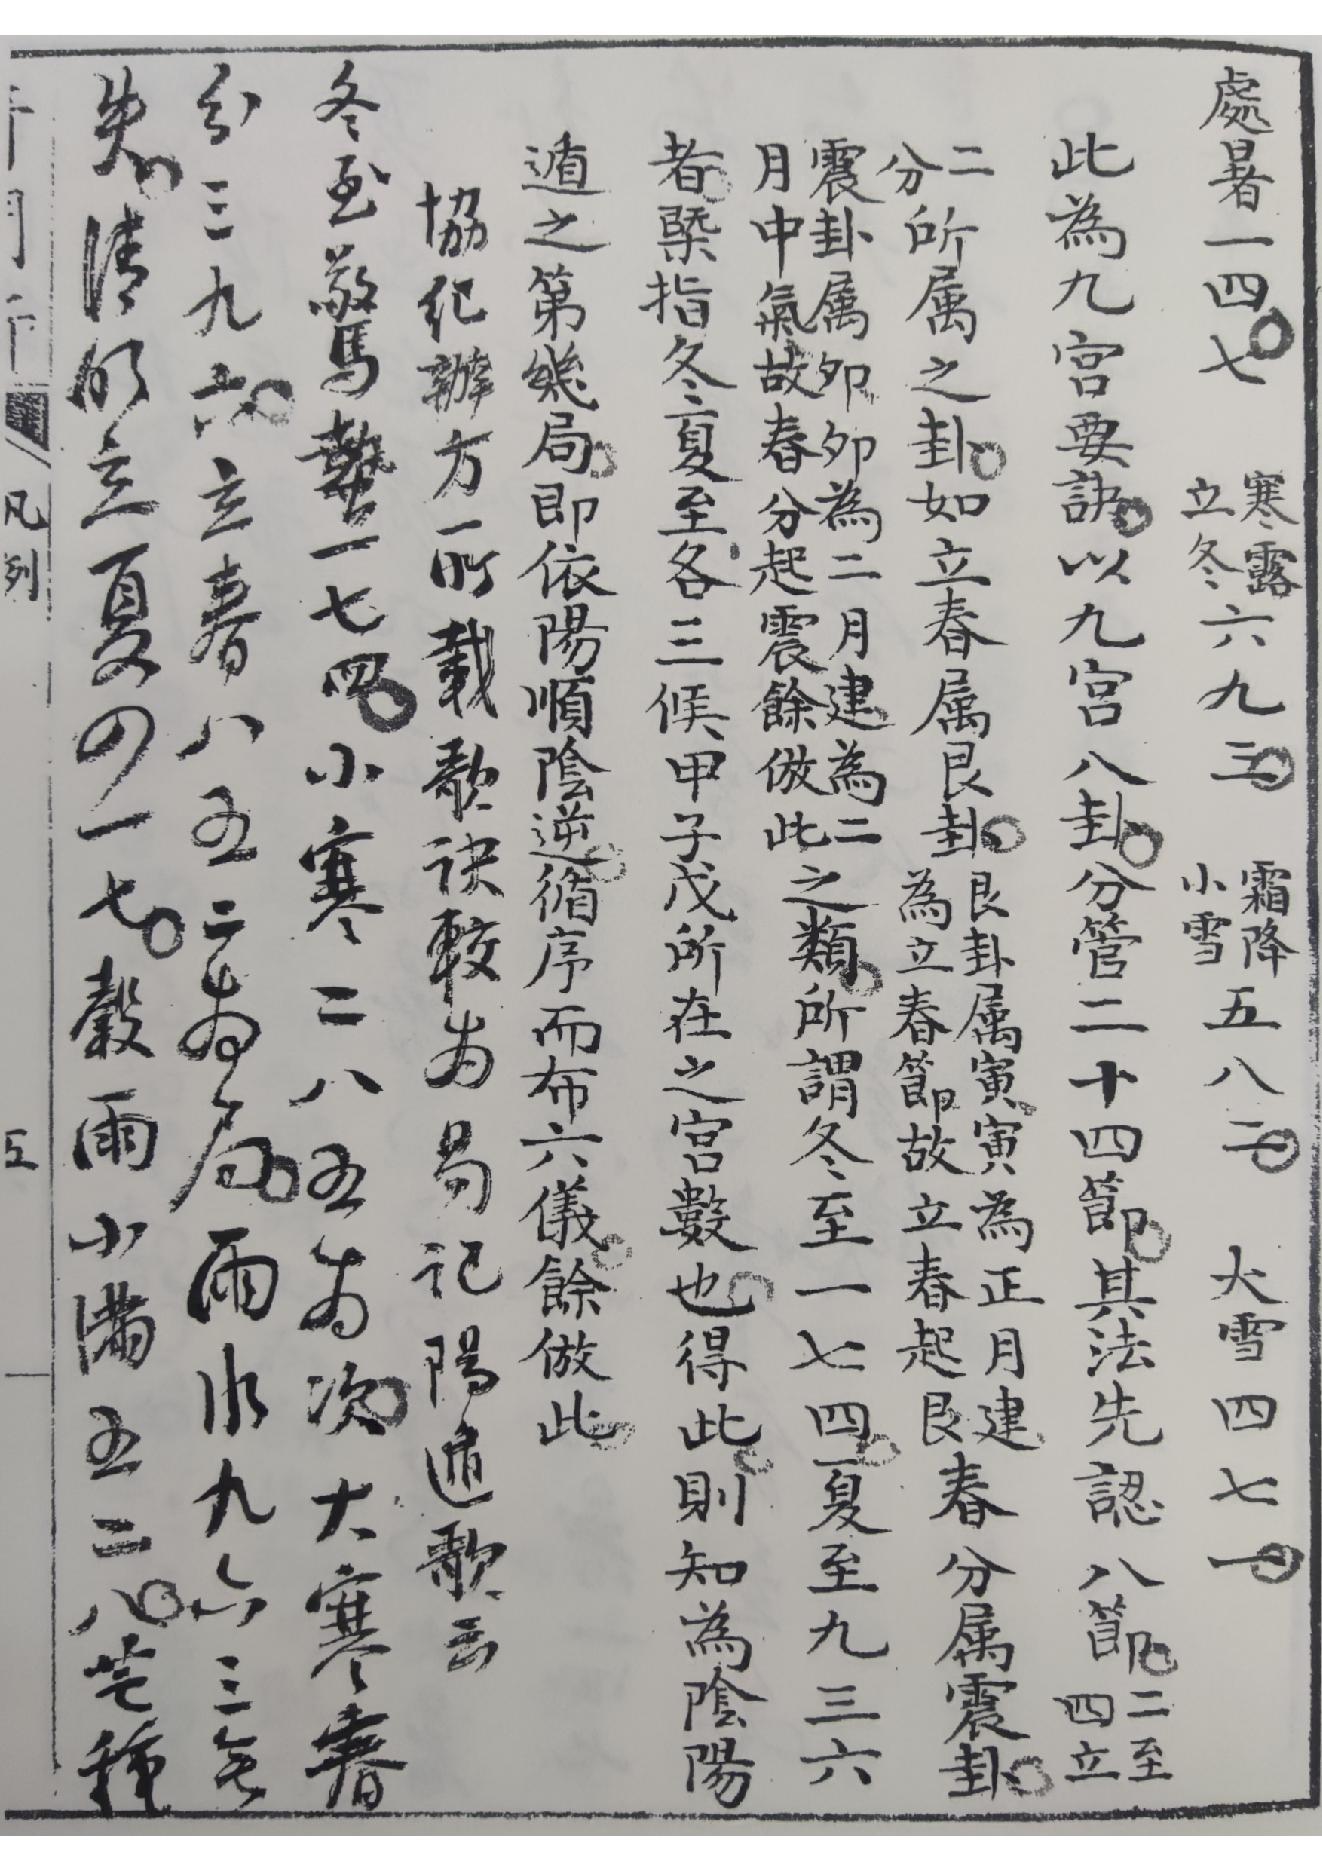 處暑一四七　寒露立冬六九三　霜降小雪五八二　大雪四七一
此為九宮要訣以九宮八卦分管二十四節其法先認八節二至四立
二分所属之卦如立春属艮卦艮卦属寅寅為正月建為立春節故立春起艮春分属震卦
震卦属夘夘為二月建為二月中氣故春分起震餘倣此之類所謂冬至一七四夏至九三六
者槩指冬夏至各三候甲子戊所在之宮數也得此則知為陰陽
遁之第幾局即依陽順陰逆循序而布六儀餘倣此
協纪辦方一所載歌诀較为易记陽遁歌云
冬至驚蟄一七四小寒二八五为次大寒春
分三九六立春八五二为局雨水九六三无
失清明立夏四一七穀雨小满五二八芒種
凡列
五